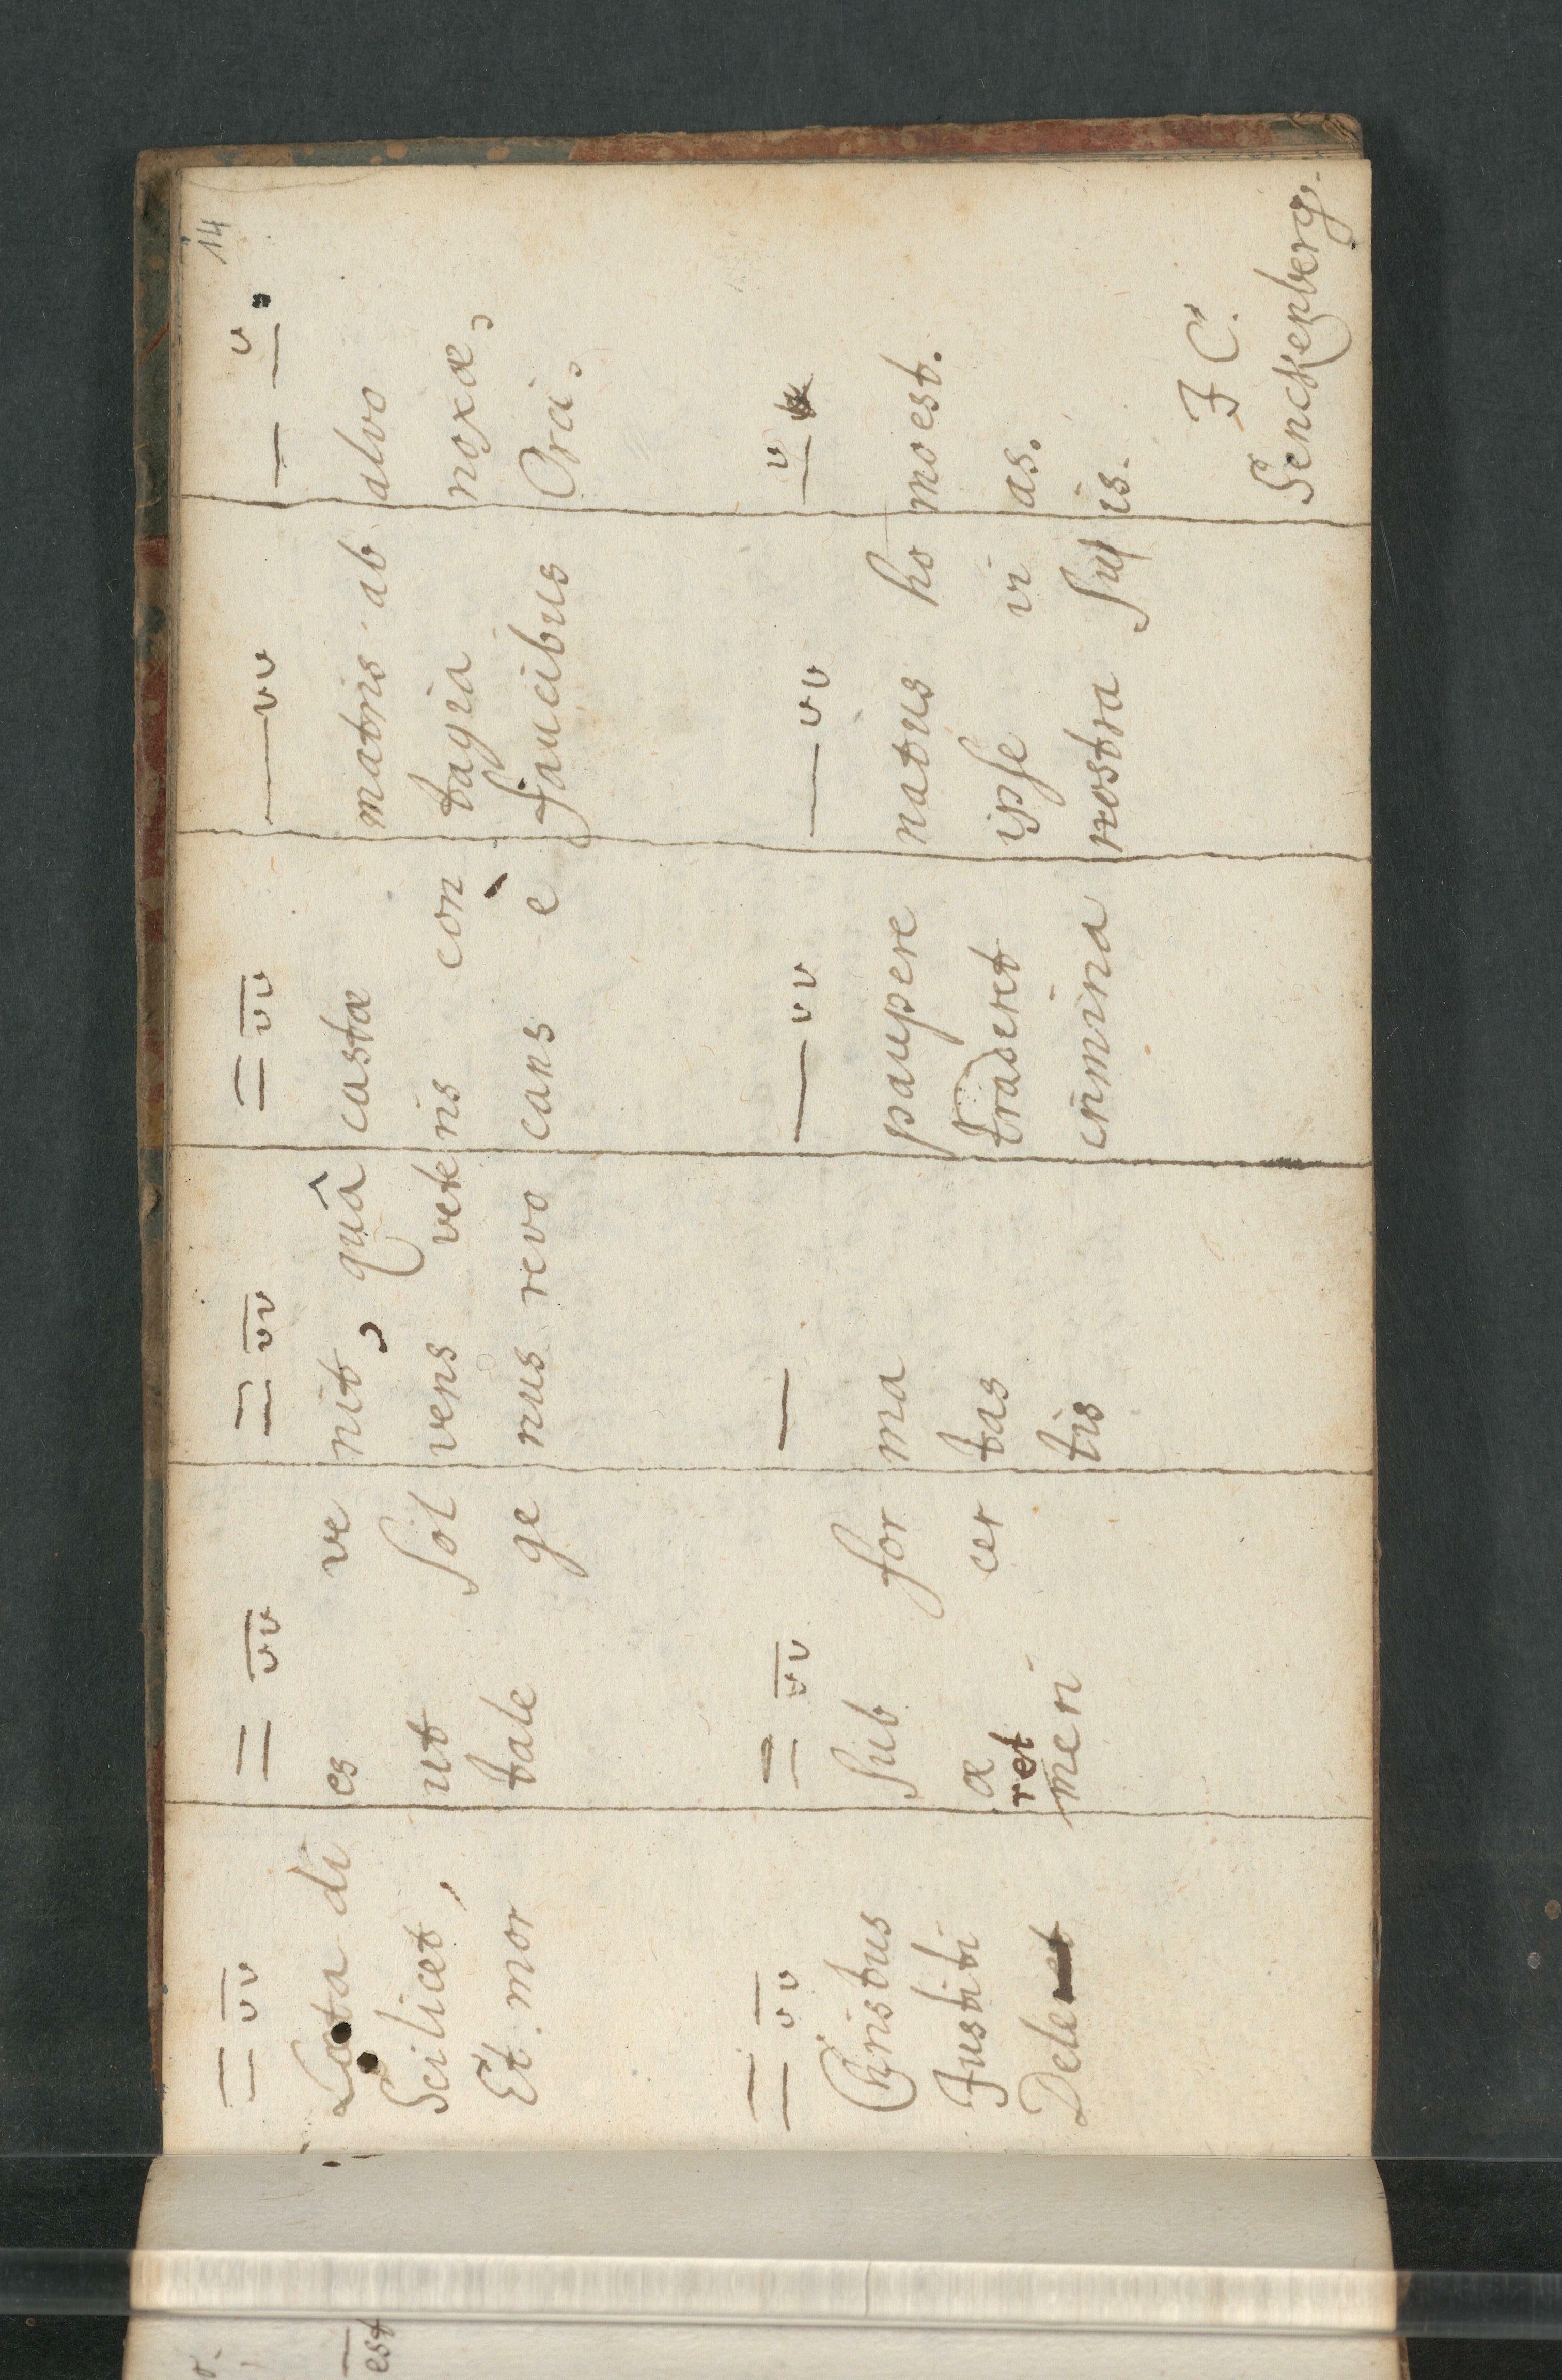 14
Læta di es ve nit, quâ castæ matris ab alvo
Scilicet, ut sol vens vete ris con tagia noxæ,
Et mor tale ge nus revo cans è faucibus Orci,
Christus sub for ma paupere natus ho mo est.
Justiti æ cer tas traderet ipse vi as.
ret
Dele meri tis crimina nostra su is.
F C.
Senckenberg.
est